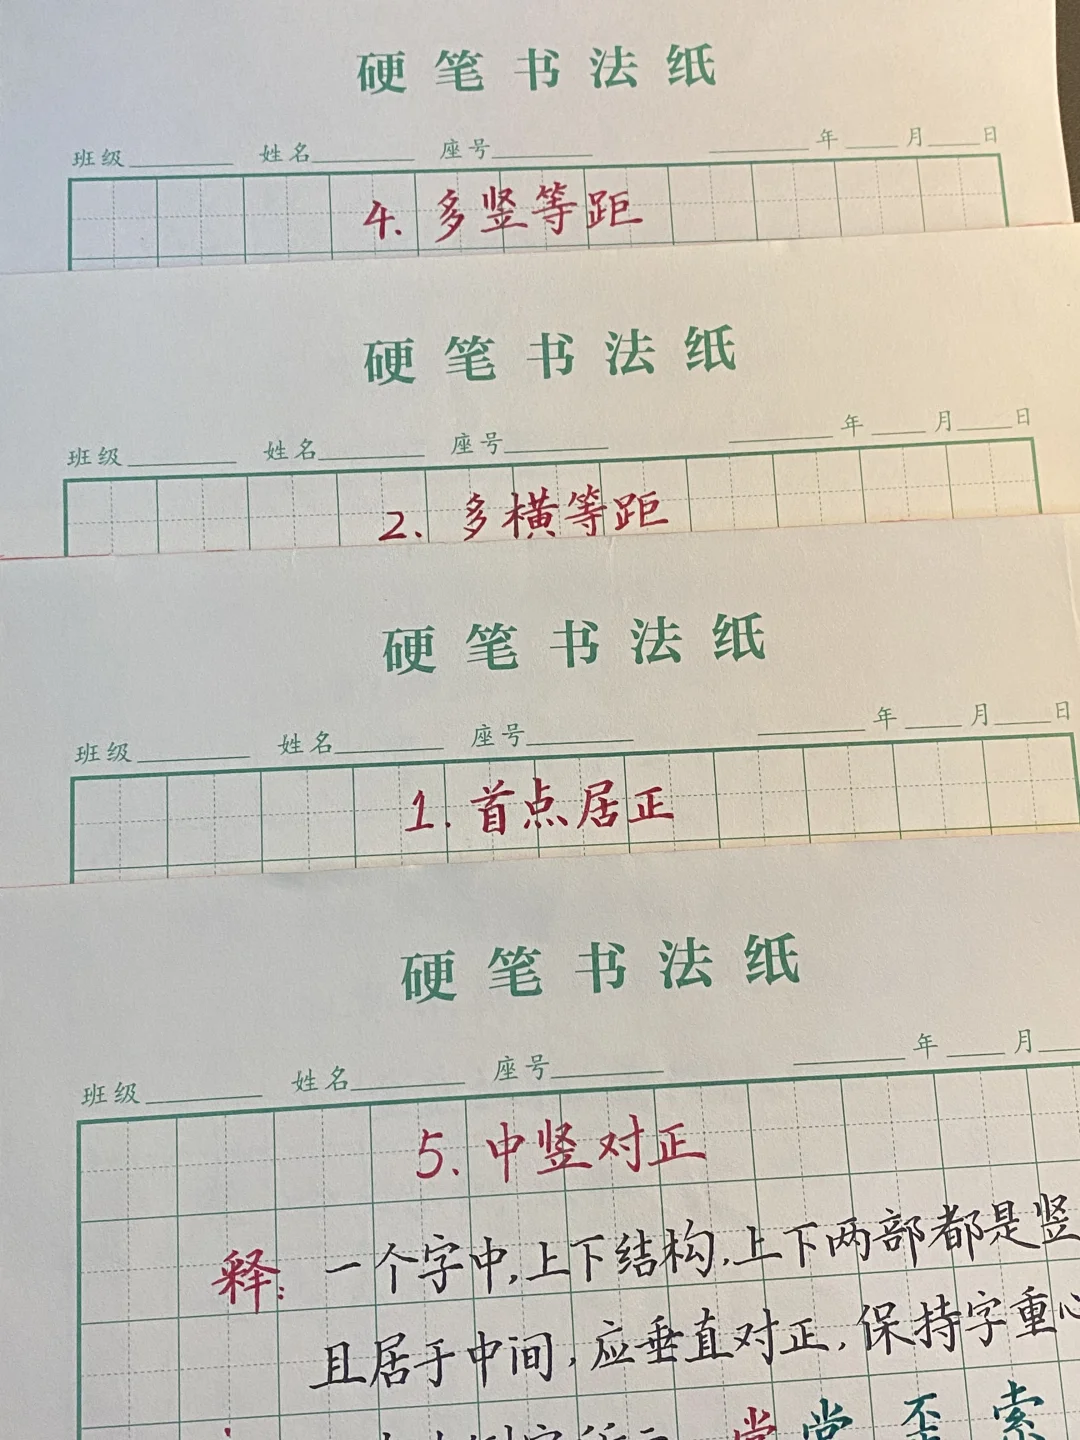 硬笔书法纸
班级 姓名 座号 年 月 日
4. 多竖等距
硬笔书法纸
班级 姓名 座号 年 月 日
2. 多横等距
硬笔书法纸
班级 姓名 座号 年 月 日
1. 首点居正
硬笔书法纸
班级 姓名 座号 年 月
5. 中竖对正
释: 一个字中,上下结构,上下两部都是竖
且居于中间,应垂直对正,保持字重心
常 尝 歪 索